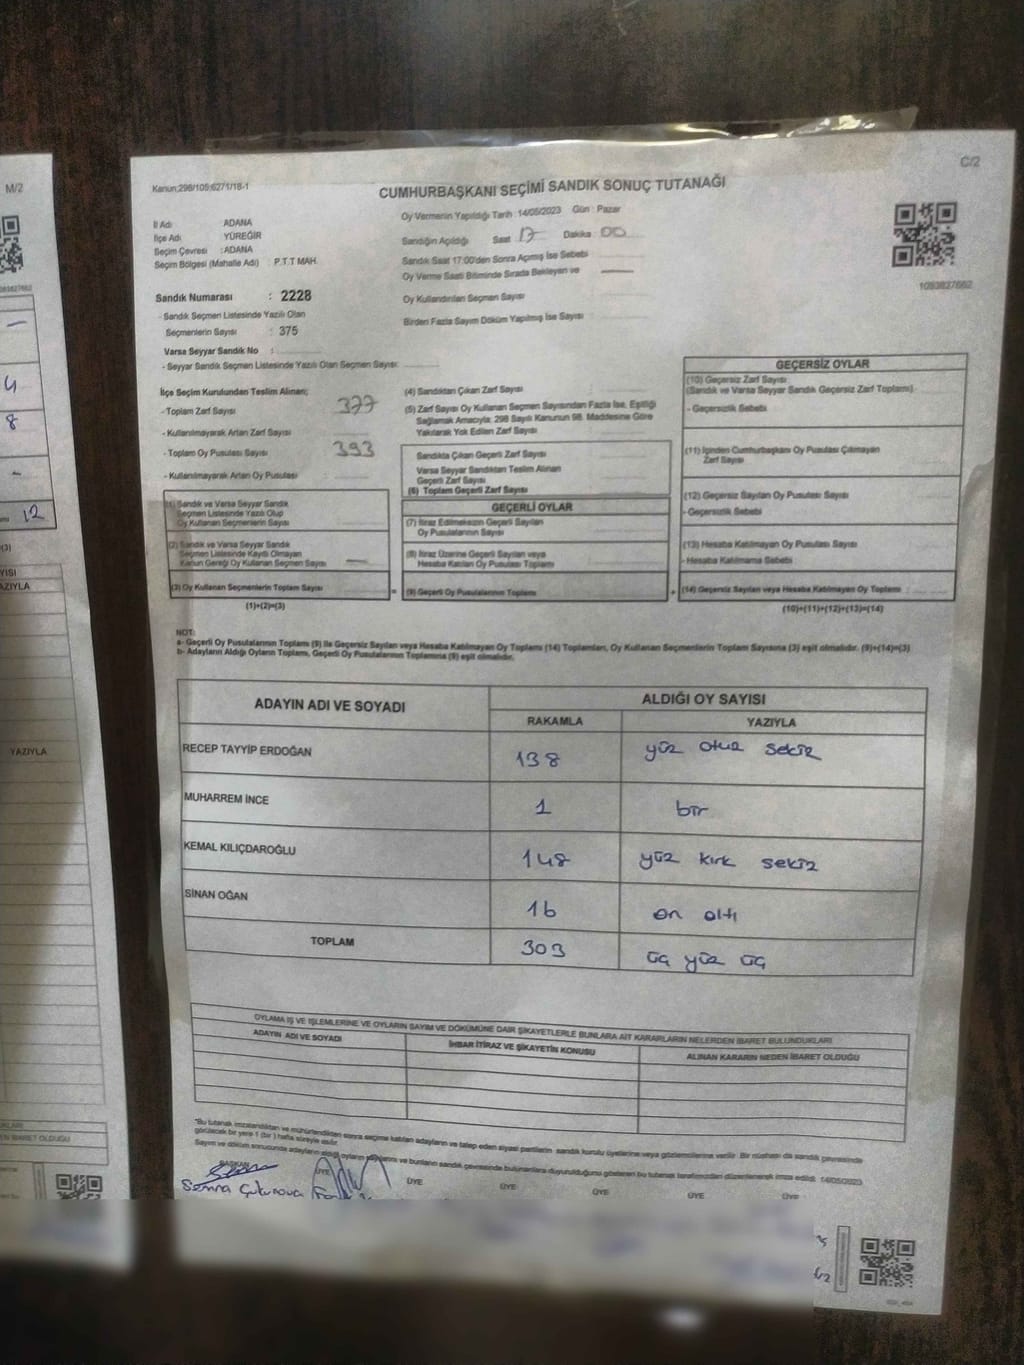 M/2
4
8
12
(3)
YAZIYLA
YAZIYLA
C/2
Kanun:298/105;6271/18-1
CUMHURBAŞKANI SEÇİMİ SANDIK SONUÇ TUTANAĞI
İl Adı ADANA
İlçe Adı YÜREĞİR
Seçim Çevresi :ADANA
Seçim Bölgesi (Mahalle Adı) : P.T.T MAH.
Oy Vermenin Yapıldığı Tarih :14/05/2023 Gün : Pazar
Sandığın Açıldığı Saat 17 Dakika 00
Sandık Saat 17:00'den Sonra Açılmış İse Sebebi
Oy Verme Saati Bitiminde Sırada Bekleyen ve
Oy Kullandırılan Seçmen Sayısı
Birden Fazla Sayım Döküm Yapılmış İse Sayısı
1093827662
Sandık Numarası : 2228
- Sandık Seçmen Listesinde Yazılı Olan
Seçmenlerin Sayısı : 375
Varsa Seyyar Sandık No :
- Seyyar Sandık Seçmen Listesinde Yazılı Olan Seçmen Sayısı:
İlçe Seçim Kurulundan Teslim Alınan;
- Toplam Zarf Sayısı 377
- Kullanılmayarak Artan Zarf Sayısı
- Toplam Oy Pusulası Sayısı 393
- Kullanılmayarak Artan Oy Pusulası
(1) Sandık ve Varsa Seyyar Sandık
Seçmen Listesinde Yazılı Olup
Oy Kullanan Seçmenlerin Sayısı
(2) Sandık ve Varsa Seyyar Sandık
Seçmen Listesinde Kayıtlı Olmayan
Kanun Gereği Oy Kullanan Seçmen Sayısı
(3) Oy Kullanan Seçmenlerin Toplam Sayısı
(1)+(2)=(3)
(4) Sandıktan Çıkan Zarf Sayısı
(5) Zarf Sayısı Oy Kullanan Seçmen Sayısından Fazla İse, Eşitliği
Sağlamak Amacıyla; 298 Sayılı Kanunun 98. Maddesine Göre
Yakılarak Yok Edilen Zarf Sayısı
Sandıkta Çıkan Geçerli Zarf Sayısı
Varsa Seyyar Sandıktan Teslim Alınan
Geçerli Zarf Sayısı
(6) Toplam Geçerli Zarf Sayısı
GEÇERLİ OYLAR
(7) İtiraz Edilmeksizin Geçerli Sayılan
Oy Pusulalarının Sayısı
(8) İtiraz Üzerine Geçerli Sayılan veya
Hesaba Katılan Oy Pusulası Toplamı
(9) Geçerli Oy Pusulalarının Toplamı
GEÇERSİZ OYLAR
(10) Geçersiz Zarf Sayısı
(Sandık ve Varsa Seyyar Sandık Geçersiz Zarf Toplamı)
- Geçersizlik Sebebi
(11) İçinden Cumhurbaşkanı Oy Pusulası Çıkmayan
Zarf Sayısı
(12) Geçersiz Sayılan Oy Pusulası Sayısı
- Geçersizlik Sebebi
(13) Hesaba Katılmayan Oy Pusulası Sayısı
- Hesaba Katılmama Sebebi
(14) Geçersiz Sayılan veya Hesaba Katılmayan Oy Toplamı
(10)+(11)+(12)+(13)=(14)
NOT:
a- Geçerli Oy Pusulalarının Toplamı (9) ile Geçersiz Sayılan veya Hesaba Katılmayan Oy Toplamı (14) Toplamları, Oy Kullanan Seçmenlerin Toplam Sayısına (3) eşit olmalıdır. (9)+(14)=(3)
b- Adayların Aldığı Oyların Toplamı, Geçerli Oy Pusulalarının Toplamına (9) eşit olmalıdır.
ADAYIN ADI VE SOYADI ALDIĞI OY SAYISI
RAKAMLA YAZIYLA
RECEP TAYYİP ERDOĞAN 138 yüz otuz sekiz
MUHARREM İNCE 1 bir
KEMAL KILIÇDAROĞLU 148 yüz kırk sekiz
SİNAN OĞAN 16 on altı
TOPLAM 303 üç yüz üç
OYLAMA İŞ VE İŞLEMLERİNE VE OYLARIN SAYIM VE DÖKÜMÜNE DAİR ŞİKAYETLERLE BUNLARA AİT KARARLARIN NELERDEN İBARET BULUNDUKLARI
ADAYIN ADI VE SOYADI İHBAR İTİRAZ VE ŞİKAYETİN KONUSU ALINAN KARARIN NEDEN İBARET OLDUĞU
*Bu tutanak imzalandıktan ve mühürlendikten sonra seçime katılan adayların ve talep eden siyasi partilerin sandık kurulu üyelerine veya gözlemcilerine verilir. Bir nüshası da sandık çevresinde
görülecek bir yere 1 (bir) hafta süreyle asılır.
Sayım ve döküm sonucunda adayların aldığı oyların sayılarını ve bunların sandık çevresinde bulunanlara duyurulduğunu gösteren bu tutanak tarafımızdan düzenlenerek imza edildi. 14/05/2023
BAŞKAN ÜYE ÜYE ÜYE ÜYE ÜYE ÜYE
Semra